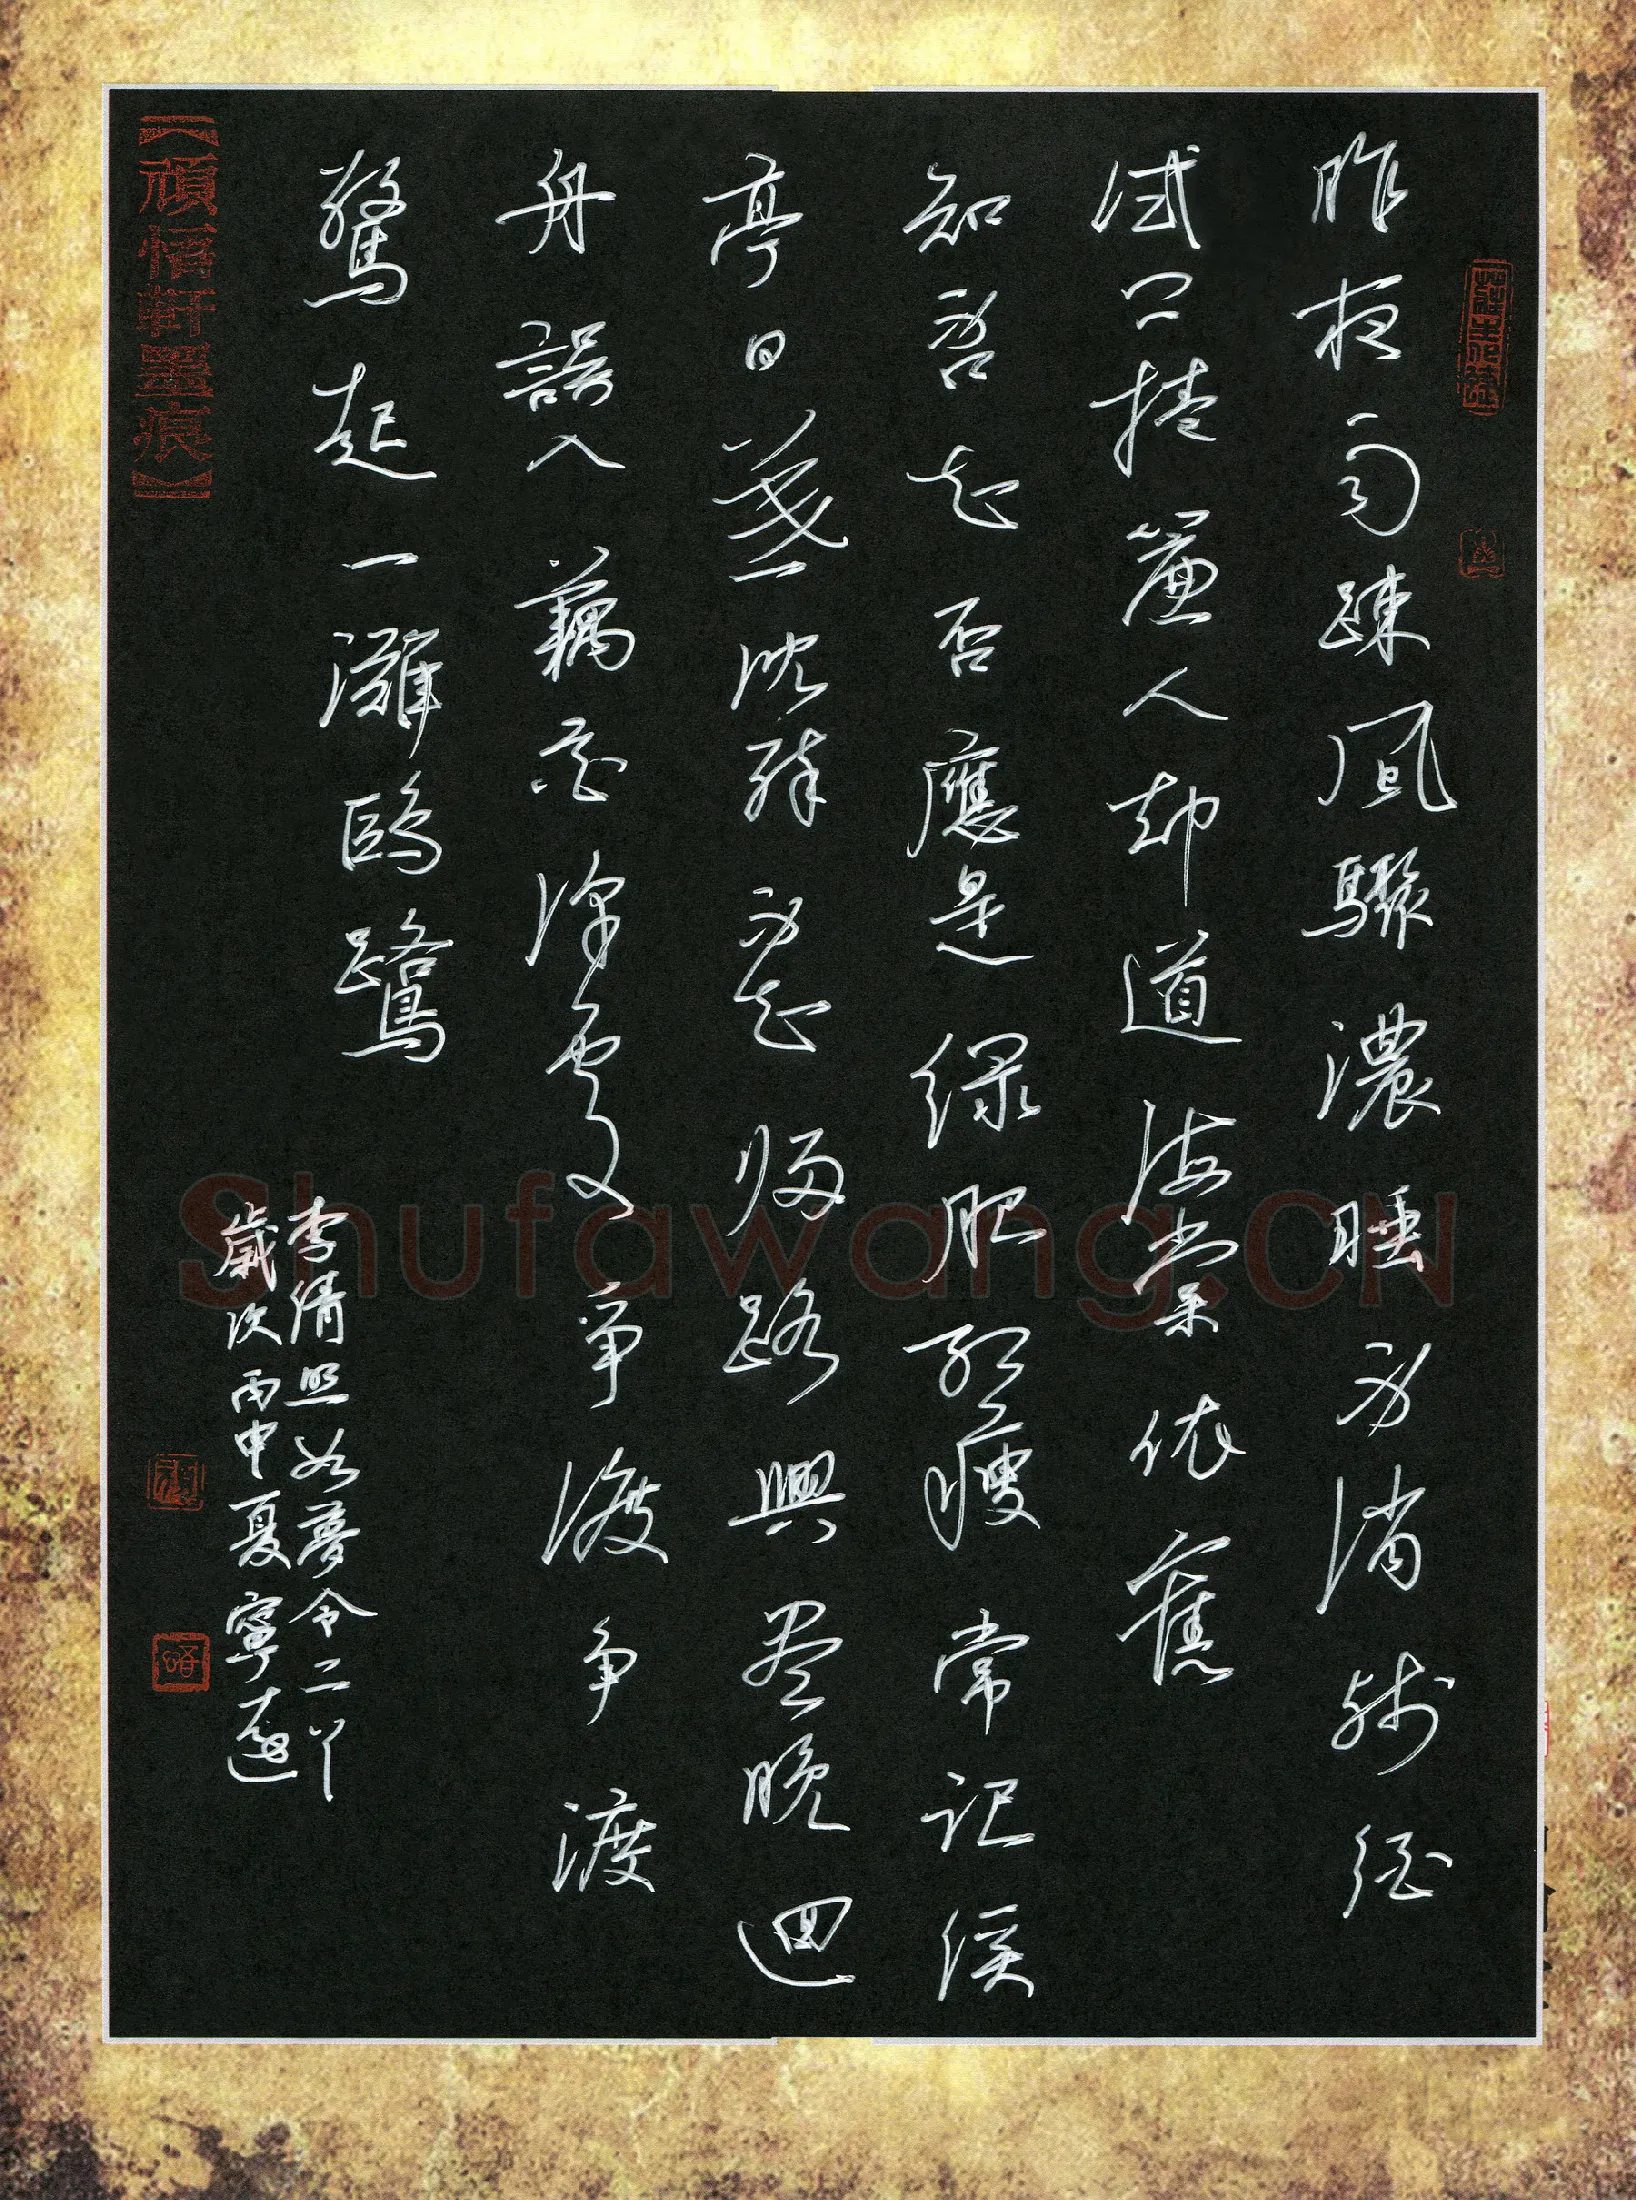 昨夜雨疎風驟濃睡不消殘酒
试问捲簾人却道海棠依舊
知否知否應是绿肥红瘦常记溪
亭日暮沈醉不知归路興尽晚迴
舟誤入藕花深處争渡争渡
驚起一灘鷗鷺
李清照如夢令二
歲次丙申夏寧遠
【頑悟軒墨痕】
頑
悟
Shufawang.CN